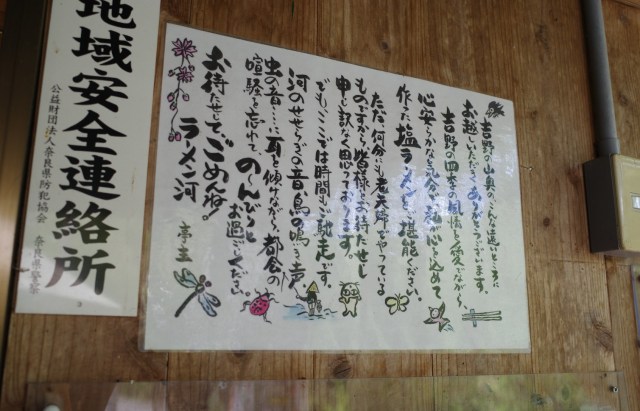 吉野の山奥のこんな遠いところに
お越しいただき、ありがとうございます。
吉野の四季の風情を愛でながら、
心安らかな気分で、私が心を込めて
作った塩ラーメンをご堪能ください。
ただ、何分にも老夫婦でやっている
ものですから、皆様をお待たせし
申し訳なく思っております。
でも、ここでは時間もご馳走です。
河のせせらぎの音、鳥の鳴き声、
虫の音……に耳を傾けながら、都会の
喧騒を忘れて、のんびりと
お過ごしください。
お待たせしてごめんね!
ラーメン河 亭主
地域安全連絡所
公益財団法人奈良県防犯協会 奈良県警察